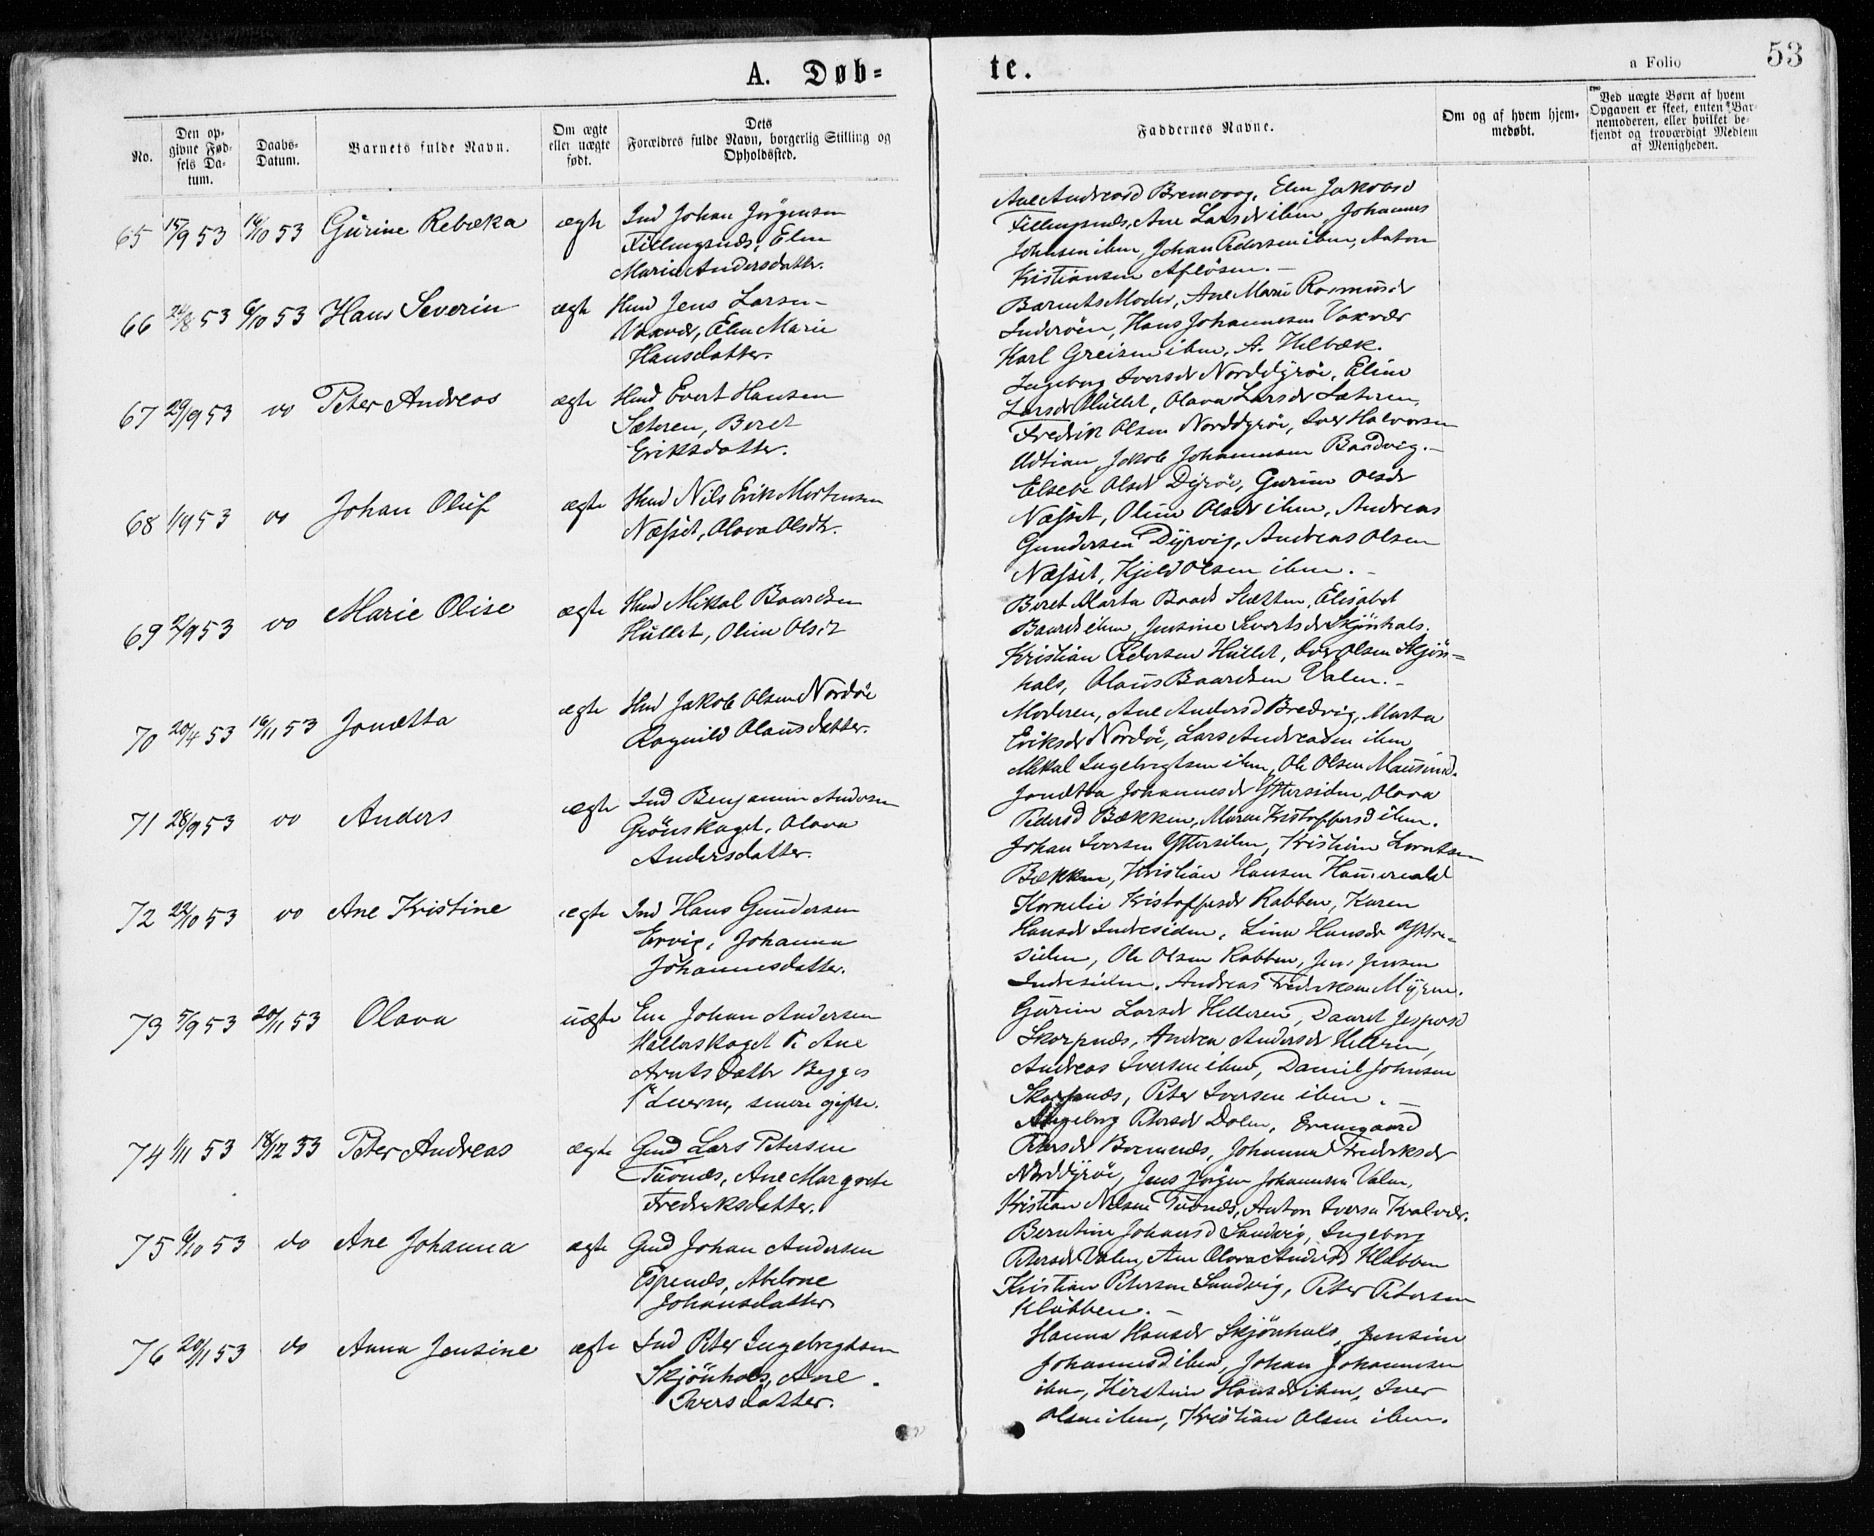 A. Døb=
te.
a Folio
53
No.
Den op-
givne Fød-
sels Da-
tum.
Daabs-
Datum.
Barnets fulde Navn.
Om ægte
eller uægte
født.
Dets
Forældres fulde Navn, borgerlig Stilling og
Opholdssted.
Faddernes Navne.
Om og af hvem hjem-
medøbt.
Ved uægte Børn af hvem
Opgaven er skeet, enten Bar-
nemoderen, eller hvilket be-
kjendt og troværdigt Medlem
af Menigheden.
65 15/9 53 16/10 53 Gurine Rebæka ægte Ind Johan Jörgensen
Fillingsnæs, Elen
Marie Andersdatter.
Ane Andreasd Bremvaag, Elen Jakobsd
Fillingsnæs, Ane Larsdr ibm, Johannes
Johnsen ibm, Johan Pedersen ibm, Anton
Kristiansen Aflösen. -
66 53 6/10 53 Hans Severin ægte Hmd Jens Larsen
Vaxvær, Elen Marie
Hansdatter.
Barnets Moder, Ane Marie Rasmusdr
Inderöen, Hans Johannesen Vaxvær
Karl Greisen ibm, A. Helbæk.
67 29/9 53 do Peter Andreas ægte Hmd Evert Hansen
Sæteren, Beret
Eriksdatter.
Ingeborg Iversdr Norddyröi, Eline
Larsdr Hullet, Olava Larsdr Sæteren,
Fredrik Olsen Norddyröi, Iver Halvorsen
Udtian, Jakob Johannesen Baadvig. -
68 1/9 53 do Johan Oluf ægte Hmd Nils Erik Mortensen
Næsset, Olava Olsdtr.
Elsebe Olsdr Dyröi, Gurine Olsdr
Næsset, Oline Olsdr ibm, Andreas
Gundersen Dyrvig, Andreas Olsen
Næsset, Kjeld Olsen ibm. -
69 2/9 53 do Marie Olise ægte Hmd Mikal Baardsen
Hullet, Oline Olsdt
Beret Marta Baards Sletten, Elisabet
Baards ibm, Jensine Sivertsdr Skjönhals.
Kristian Pedersen Hullet, Iver Olsen Skjön=
hals, Olaus Baardsen Valen. -
70 20/4 53 16/11 53 Jonetta ægte Hmd Jakob Olsen Nordöi
Ragnild Olausdatter.
Moderen, Ane Andersd Bredvig, Marta
Eriksdr Nordöi, Lars Andreasen ibm
Mikal Ingebrigtsen ibm, Ole Olsen Mausund.
71 28/9 53 do Anders ægte Ind Benjamin Andersen
Grönskaget, Olava
Andersdatter.
Jonetta Johannesdr Yttersiden, Olava
Pedersd Bækken, Maren Kristoffersd ibm.
Johan Iversen Yttersiden, Kristian Lorntsen
Bækken, Kristian Hansen
72 22/10 53 do Ane Kristine ægte Ind Hans Gundersen
Ervig, Johanna
Johannesdatter.
Kornelie Kristoffersdr Rabben, Karen
Hansdr Indresiden, Lina Hansdr Yttre-
siden, Ole Olsen Rabben, Jens Jensen
Indresiden, Andreas Fredriksen Myren.
73 5/9 53 20/11 53 Olava uægte Em Johan Andersen
Hallerskaget P. Ane
Arntsdatter Begges
1ste Leierm, senere gifte.
Gurine Larsdr Helleren, Daaret Jespersd
Skarpnæs, Andrea Andersdr Helleren,
Andreas Iversen ibm, Daniel Johnsen
Skarpnæs, Peter Iversen ibm. -
74 1/11 53 18/12 53 Peter Andreas ægte Gmd Lars Petersen
Tuvnæs, Ane Margrete
Fredriksdatter.
Ingeborg Petersdr Dolen, Ermegaard
Petersdr Bremnæs, Johanna Fredriksdr
Norddyröi, Jens Jörgen Johannesen Valen,
Kristian Nilsen Tuvnæs, Anton Iversen Kvalvær.
75 6/10 53 do Ane Johanna ægte Gmd Johan Andersen
Espnæs, Abelone
Johansdatter.
Berntine Johansd Sandvig, Ingeborg
Petersdr Valen, Ane Olava Andersd Klubben
Kristian Petersen Sandvig, Peter Petersen
Klubben. -
76 20/11 53 do Anna Jensine ægte Ind Peter Ingebrigtsen
Skjönhals, Ane
Iversdatter.
Hanna Hansdr Skjönhals, Jensine
Johannesd ibm, Johan Johannesen
ibm, Kirstine Hansdr ibm, Iver
Olsen ibm, Kristian Olsen ibm.